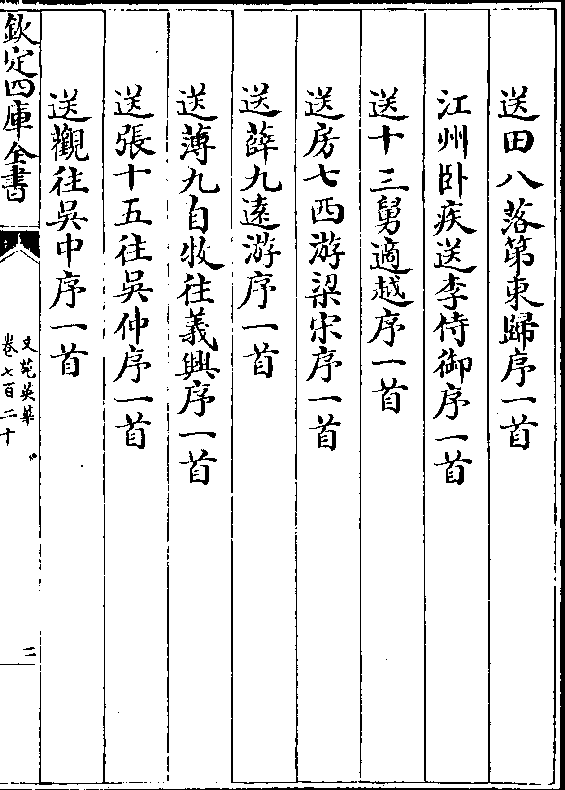 送田八落第東歸序一首
江州卧疾送李侍御序一首
送十三舅適越序一首
送房七西游梁宋序一首
送薛九遠游序一首
送薄九自牧往義興序一首
送張十五往吳仲序一首
送觀往吳中序一首
欽定四庫全書
文苑英華
卷七百二十
二